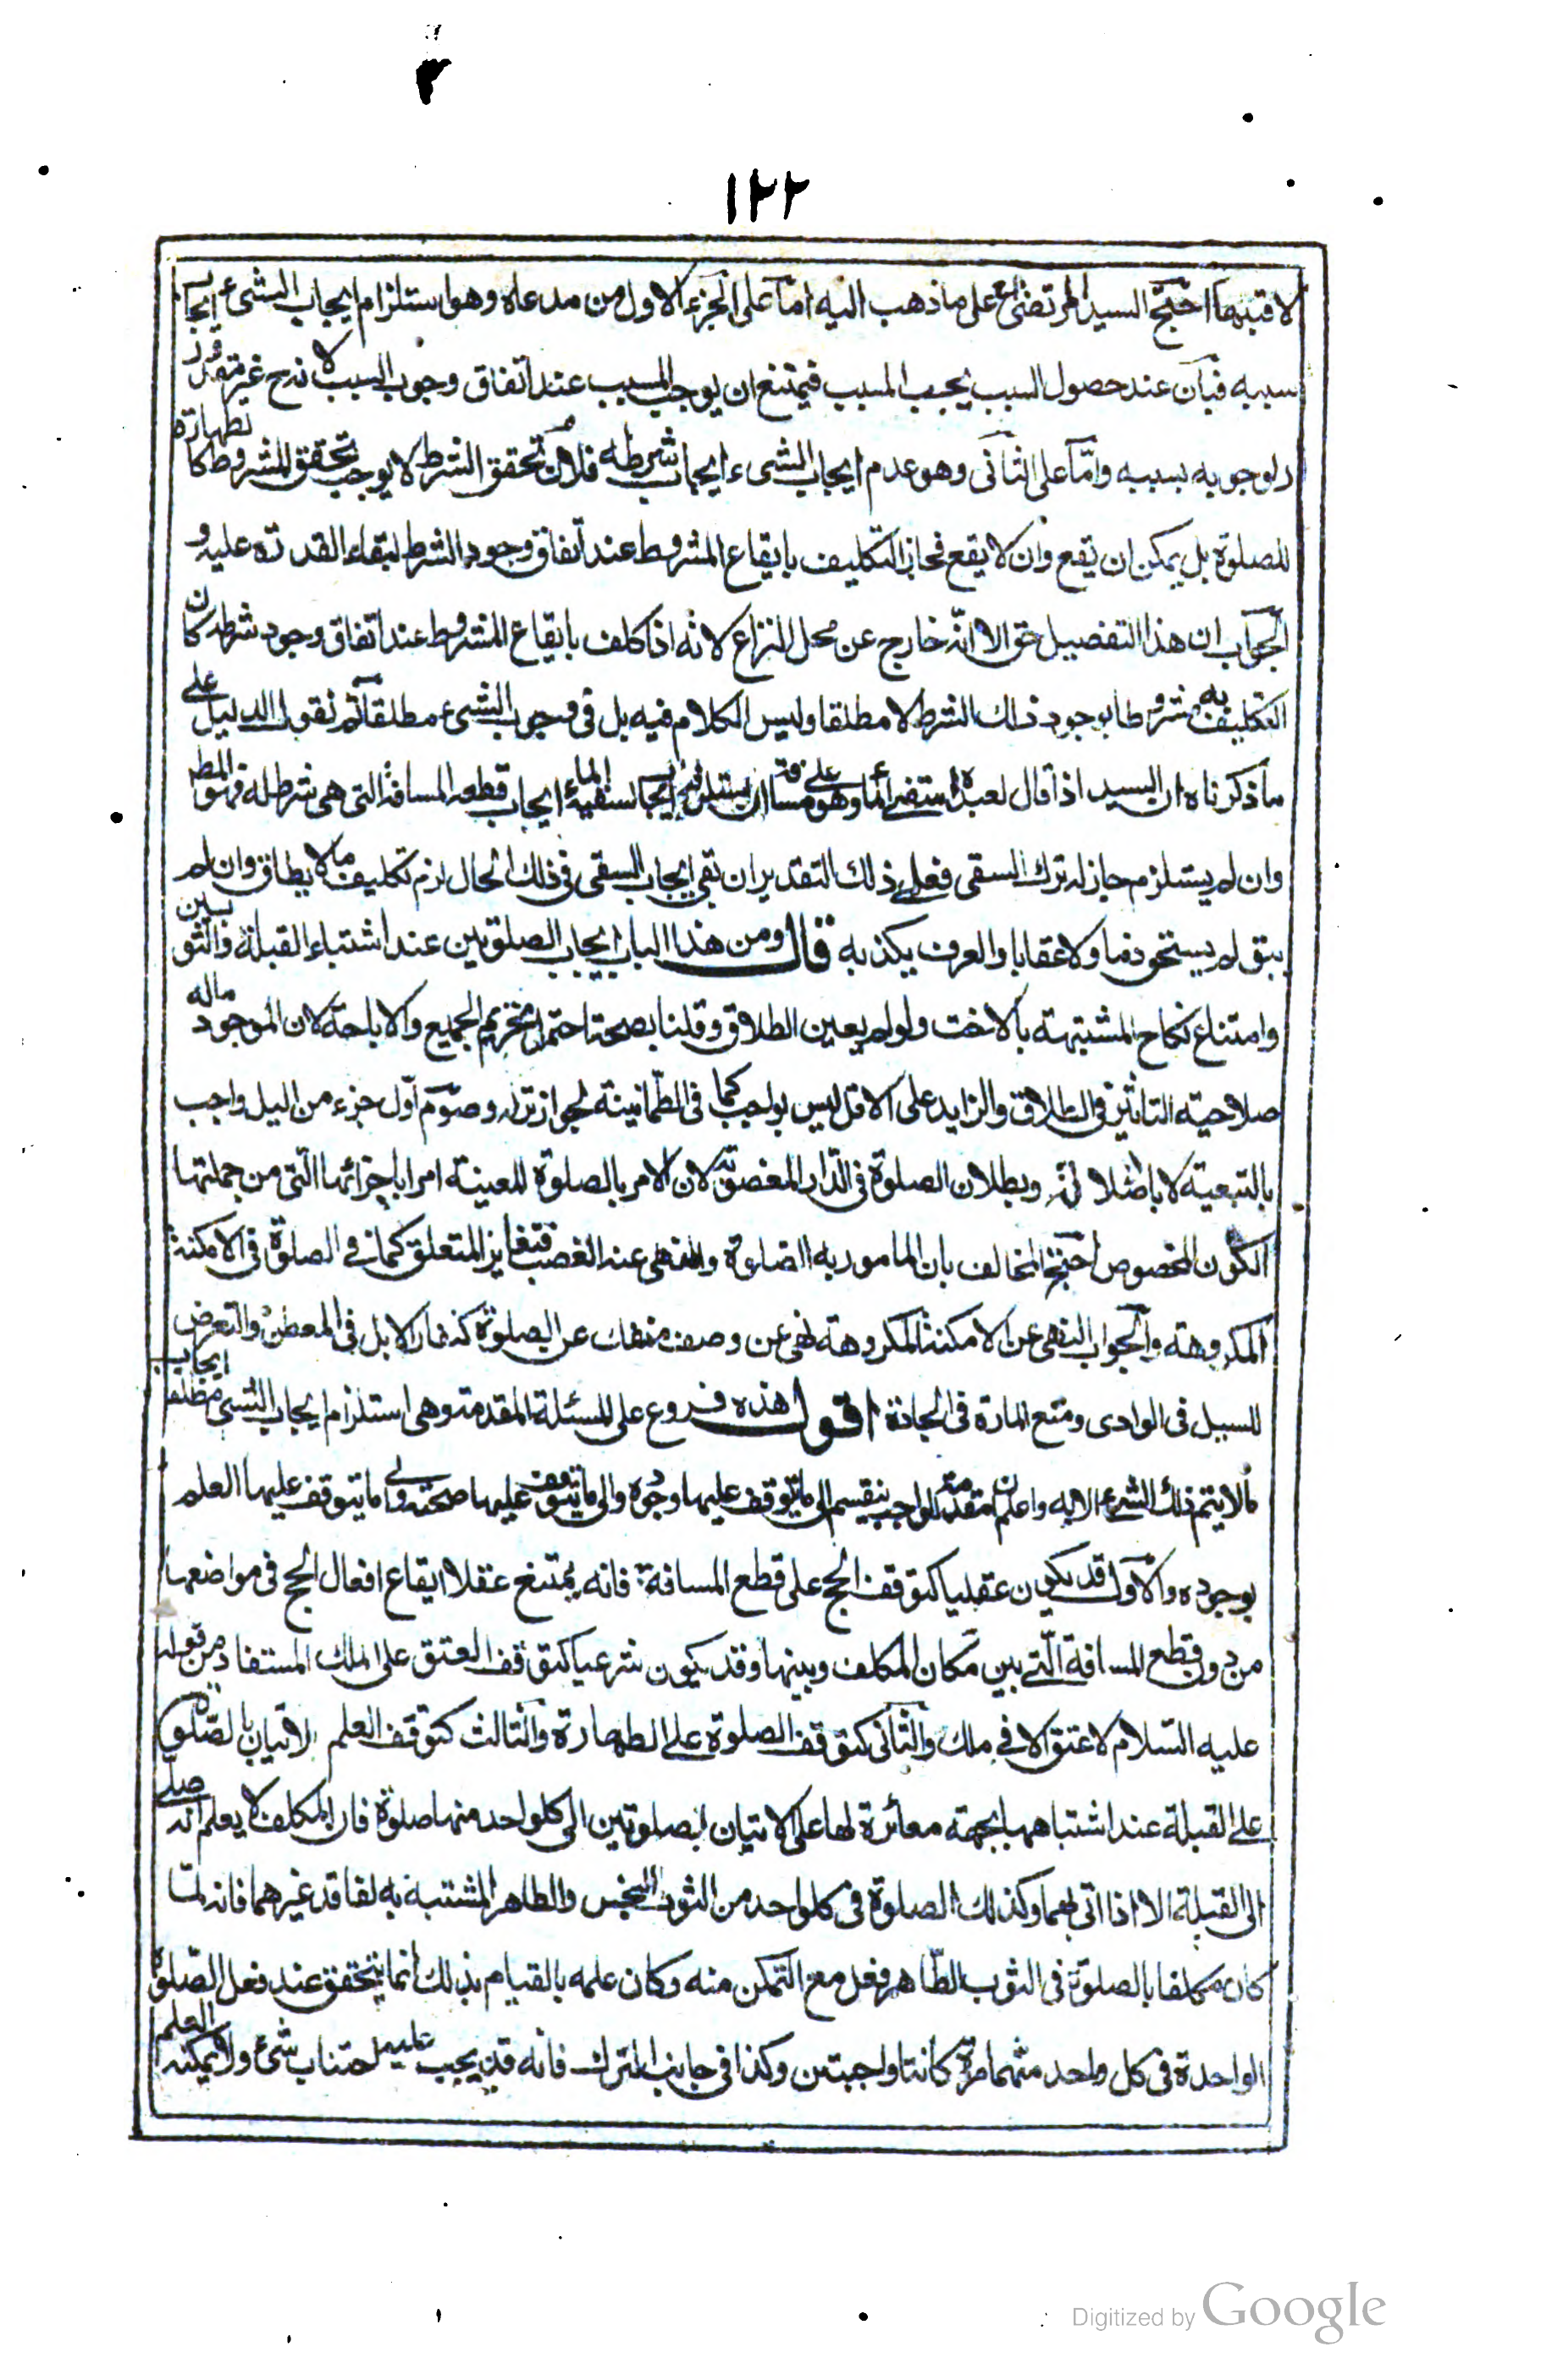 ١٢٢
لا قتبهما احتج السيد المرتضى ع على ما ذهب اليه اما على الجزء الاول من مدعاه وهو استلزام ايجاب الشيء ايجاب
سببه فبان عند حصول السبب يجب المسبب فيمتنع ان يوجب المسبب عند اتفاق وجوب السبب لانه ح غير مقدور
لوجوبه بسببه واما على الثانى وهو عدم ايجاب الشىء ايجاب شرطه فلان تحقق الشرط لا يوجب تحقق المشروط كالطهارة
للصلوة بل يمكن ان تقع وان لا يقع فجاز التكليف بايقاع المشروط عند اتفاق وجود الشرط لبقاء القدرة عليه و
الجواب ان هذا التفصيل حق الا انه خارج عن محل النزاع لانه اذا كلف بايقاع المشروط عند اتفاق وجود شرطه كان
التكليف به مشروطا بوجود ذلك الشرط لا مطلقا وليس الكلام فيه بل فى وجوب الشىء مطلقا ثم نقول الدليل على
ما ذكرناه ان السيد اذا قال لعبده استقنى ماء وهو على مسافة ان يستلزم ايجاب سقيه الماء ايجاب قطعه المسافة التى هى شرط له فهو المط
وان لم يستلزم جاز له ترك السقى فعلى ذلك التقدير ان بقى ايجاب السقى فى ذلك الحال لزم تكليف ما لا يطاق وان لم
يبق لم يستحق ذما ولا عقابا والعرف يكذبه قال ومن هذا الباب ايجاب الصلوتين عند اشتباه القبلة والثوبين
وامتناع نكاح المشتبهة بالاخت ولو لم يعين الطلاق وقلنا بصحته احتمل تحريم الجميع والاباحة لان الموجود ماله
صلاحية التاثير فى الطلاق والزايد على الاقل ليس بواجب كما فى الطمانينة لجواز تركه وصوم اول جزء من اليل واجب
بالتبعية لا بالاصالة وبطلان الصلوة فى الدار المغصوبة لان الامر بالصلوة المعينة امر باجزائها التى من جملتها
الكون المخصوص احتج المخالف بان المامور به الصلوة والمنهى عنه الغصب فتغاير المتعلق كما فى الصلوة فى الامكنة
المكروهة والجواب النهى عن الامكنة المكروهة نهى عن وصف منفك عن الصلوة كنفار الابل فى المعطن والتعرض
للسيل فى الوادى ومنع المارة فى الجادة اقول هذه فروع على المسئلة المقدمة وهى استلزام ايجاب الشىء مطلقا ايجاب
ما لا يتم ذلك الشىء الا به واعلم ان مقدمة الواجب ينقسم الى ما يتوقف عليها وجوده والى ما يتوقف عليها صحته والى ما يتوقف عليها العلم
بوجوده والاول قد يكون عقليا كتوقف الحج على قطع المسافة فانه يمتنع عقلا ايقاع افعال الحج فى مواضعها
من دون قطع المسافة التى بين مكان المكلف وبينها وقد يكون شرعيا كتوقف العتق على الملك المستفاد من قوله
عليه السلام لا عتق الا فى ملك والثانى كتوقف الصلوة على الطهارة والثالث كتوقف العلم لاتيان بالصلوة
على القبلة عند اشتباهها بجهة مغائرة لها على الاتيان بصلوتين الى كل واحد منها صلوة فان المكلف لا يعلم انه صلى
الى القبلة الا اذا اتى بهما وكذلك الصلوة فى كل واحد من الثوب النجس والطاهر المشتبه به لفاقد غيرهما فانه لما
كان مكلفا بالصلوة فى الثوب الطاهر فعل مع التمكن منه وكان علمه بالقيام بذلك انما يتحقق عند فعل الصلوة
الواحدة فى كل واحد منهما مرة كانتا واجبتين وكذا فى جانب الترك فانه قد يجب عليه اجتناب شىء ولا يمكنه العلم
Digitized by Google